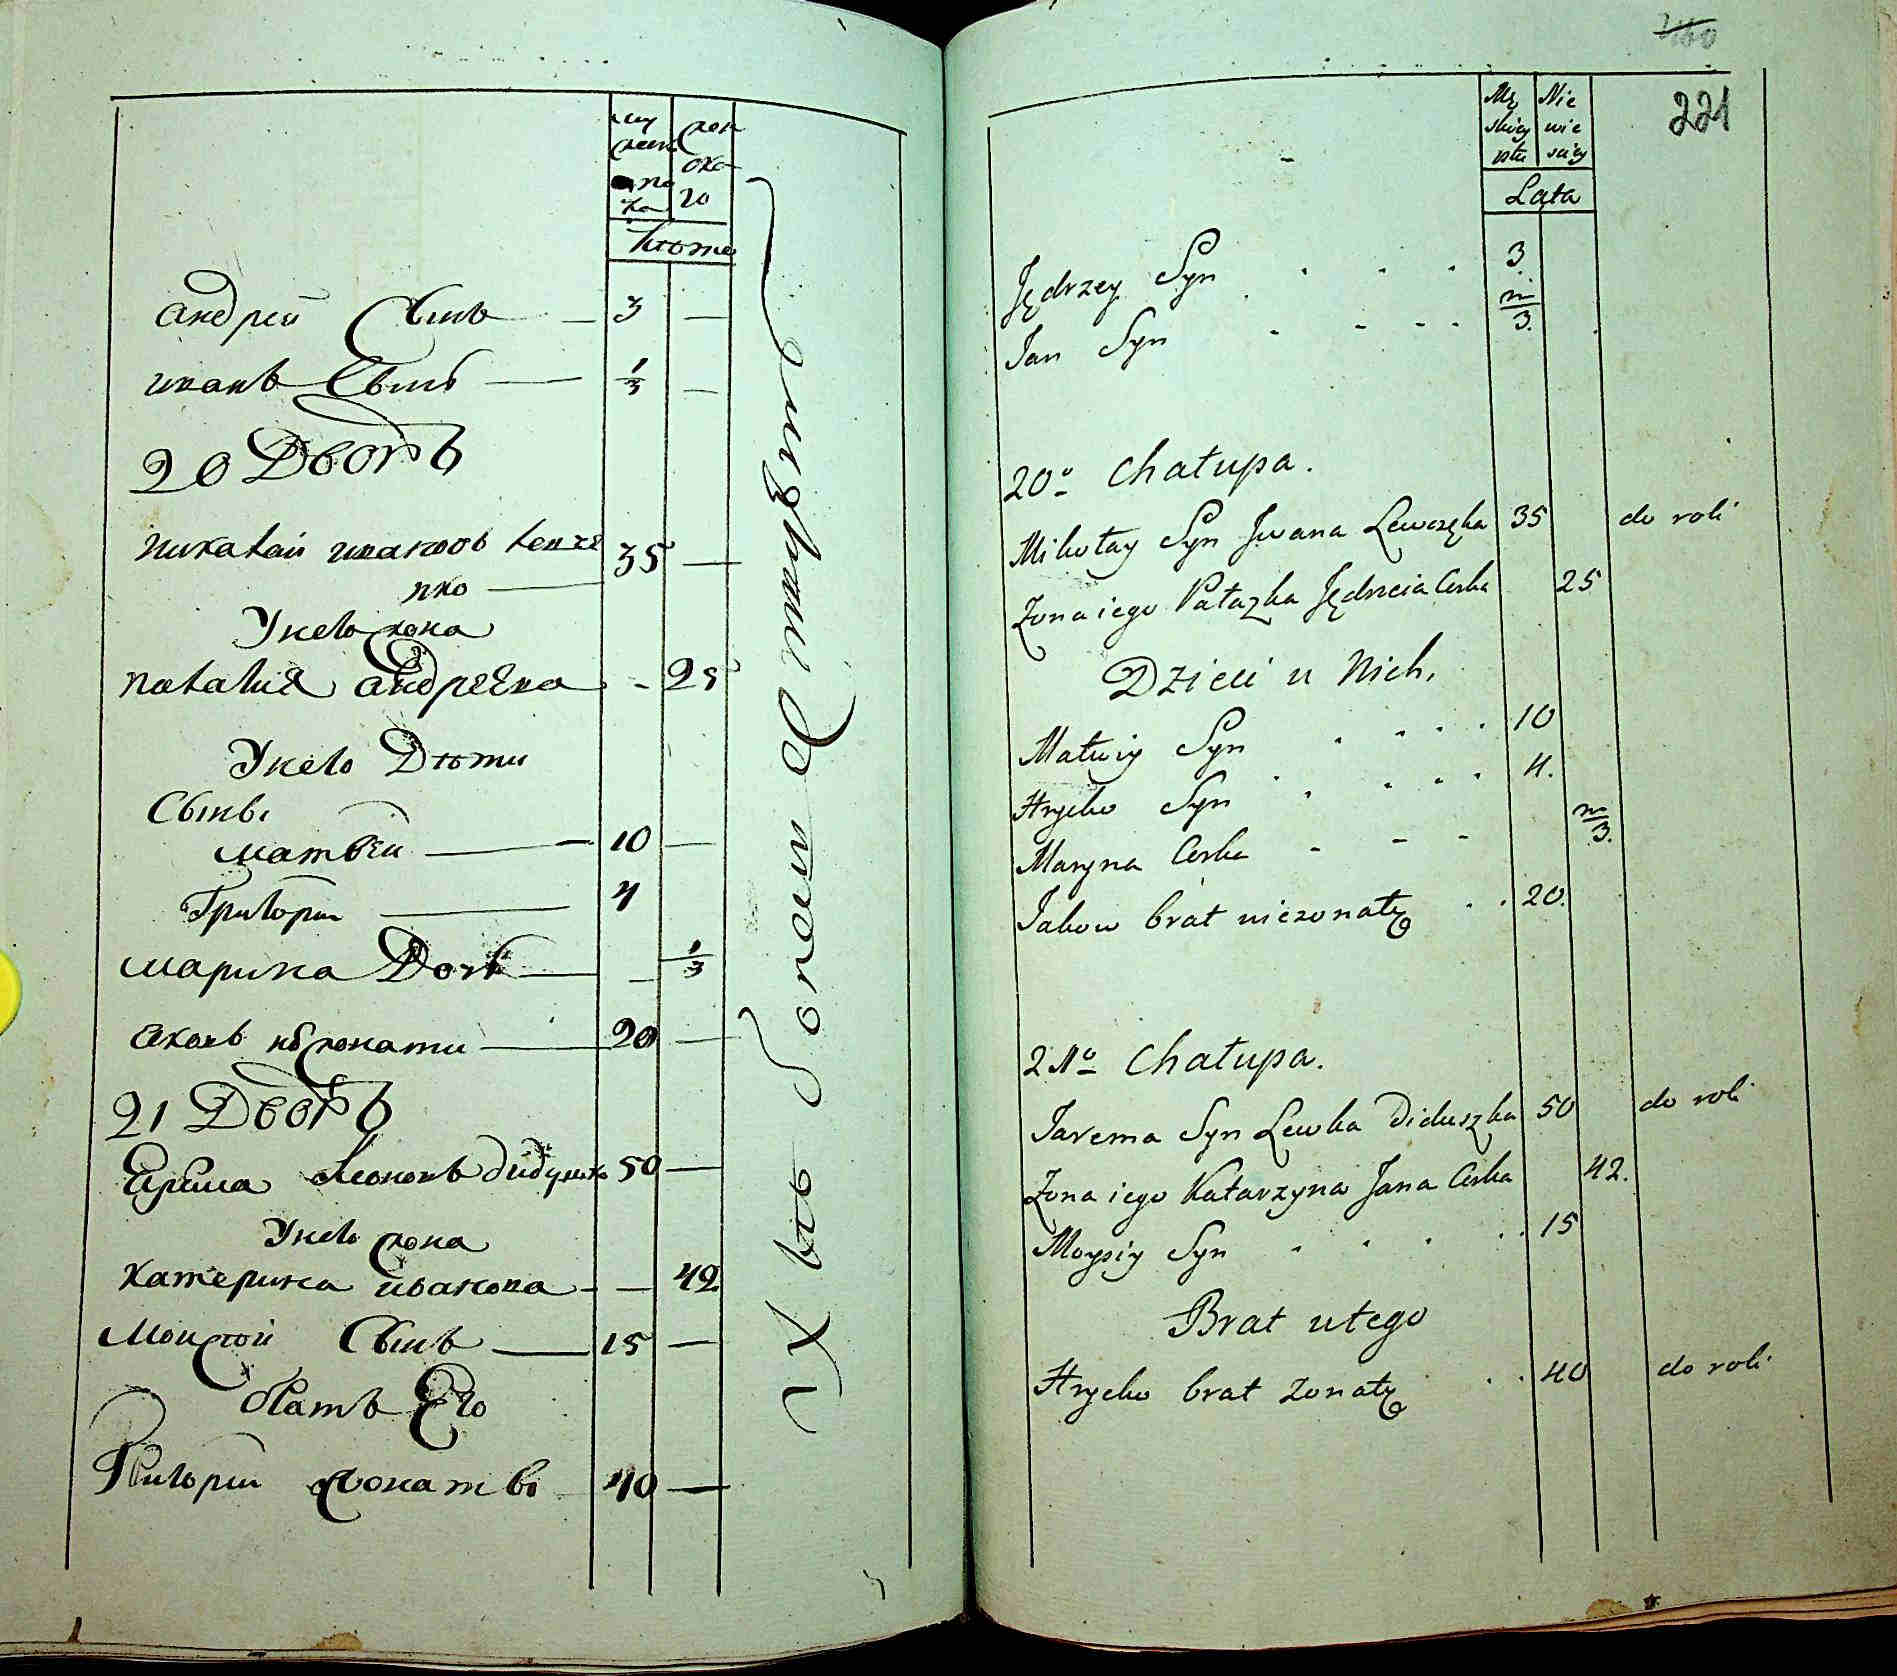 му
жеск
апо
ла
жен
ска
го
Лѣта
андрей Сынъ — 3 —
иванъ Сынъ — 1/3 —
20 Дворъ
николай ивановъ левче
нко — 35 —
У него жона
наталия андреева - 25
У него Дѣти
Сыны
матвѣи — 10 —
Григории — 4
марина Дочь — — 1/3
яковъ нежонати — 20 —
21 Дворъ
Ерема Леоновъ дидушко 50 —
У него жона
катерина иванова - — 42
Моисей Сынъ — 15 —
братъ Его
Григории жонаты 40 —
221
Mę
skiey
płci
Nie
wie
sciey
Lata
Jędrzey Syn . . . 3.
Jan Syn - - - - m/3.
20o Chałupa.
Mikołay Syn Jwana Lewczęka 35 do roli
Zona iego Pałazka Jędrzeia Corka 25
Dzieci u Nich.
Matwiy Syn . . . . 10
Hrycko Syn . . . . 4.
Maryna Corka - - - m/3.
Jakow brat niezonaty . . 20.
21o Chałupa.
Jarema Syn Lewka Diduszka 50 do roli
Zona iego Katarzyna Jana Corka 42.
Moysiy Syn . . . . . 15
Brat utego
Hrycko brat Zonaty . . 40 do roli